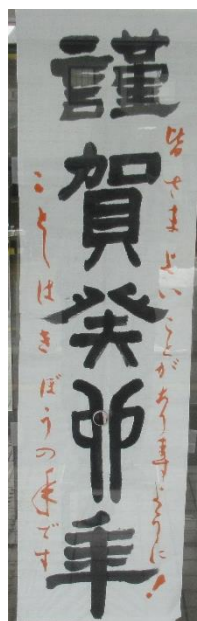 謹賀癸卯年
皆さまよいことがありますように!
ことしはきぼうの年です